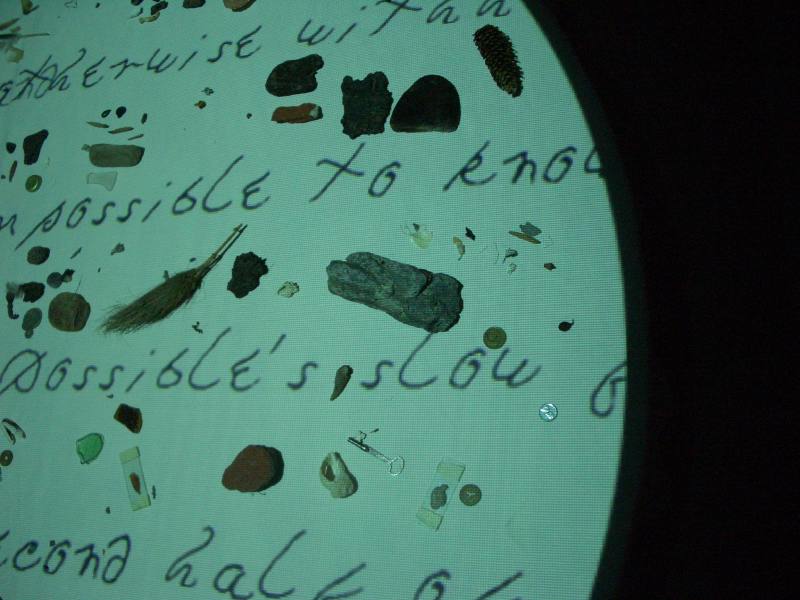 otherwise with
possible to know
possible's slow
second half of